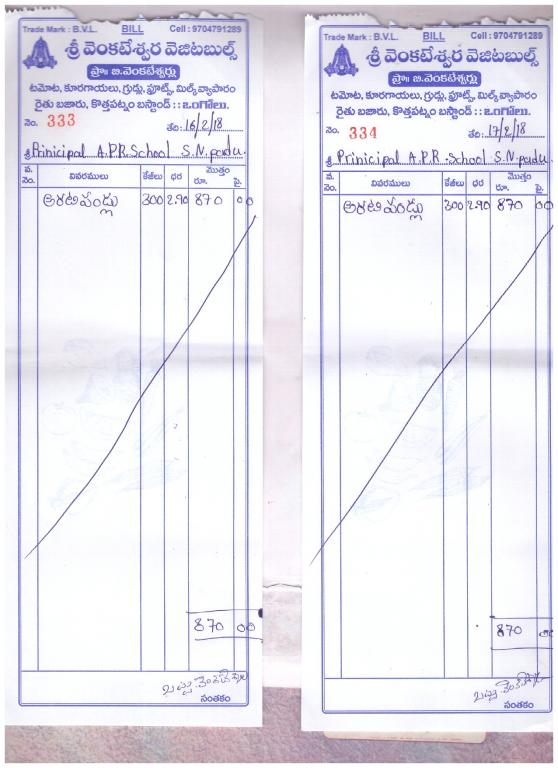 Trade Mark : B.V.L. BILL Cell : 9704791289
శ్రీ వెంకటేశ్వర వెజిటబుల్స్
ప్రొః బి.వెంకటేశ్వర్లు
టమోట, కూరగాయలు, గ్రుడ్లు, ఫ్రూట్స్, మిల్క్ వ్యాపారం
రైతు బజారు, కొత్తపట్నం బస్టాండ్ :: ఒంగోలు.
నెం. 333 తేది: 16/2/18
శ్రీ Prinicipal A.P.R.School S.N.padu.
వ. నెం. వివరములు కేజీలు ధర మొత్తం రూ. పై.
అరటిపండ్లు 300 2.90 870 00
870 00
సంతకం
Trade Mark : B.V.L. BILL Cell : 9704791289
శ్రీ వెంకటేశ్వర వెజిటబుల్స్
ప్రొః బి.వెంకటేశ్వర్లు
టమోట, కూరగాయలు, గ్రుడ్లు, ఫ్రూట్స్, మిల్క్ వ్యాపారం
రైతు బజారు, కొత్తపట్నం బస్టాండ్ :: ఒంగోలు.
నెం. 334 తేది: 17/2/18
శ్రీ Prinicipal A.P.R.School S.N.padu.
వ. నెం. వివరములు కేజీలు ధర మొత్తం రూ. పై.
అరటిపండ్లు 300 2.90 870 00
870 00
సంతకం